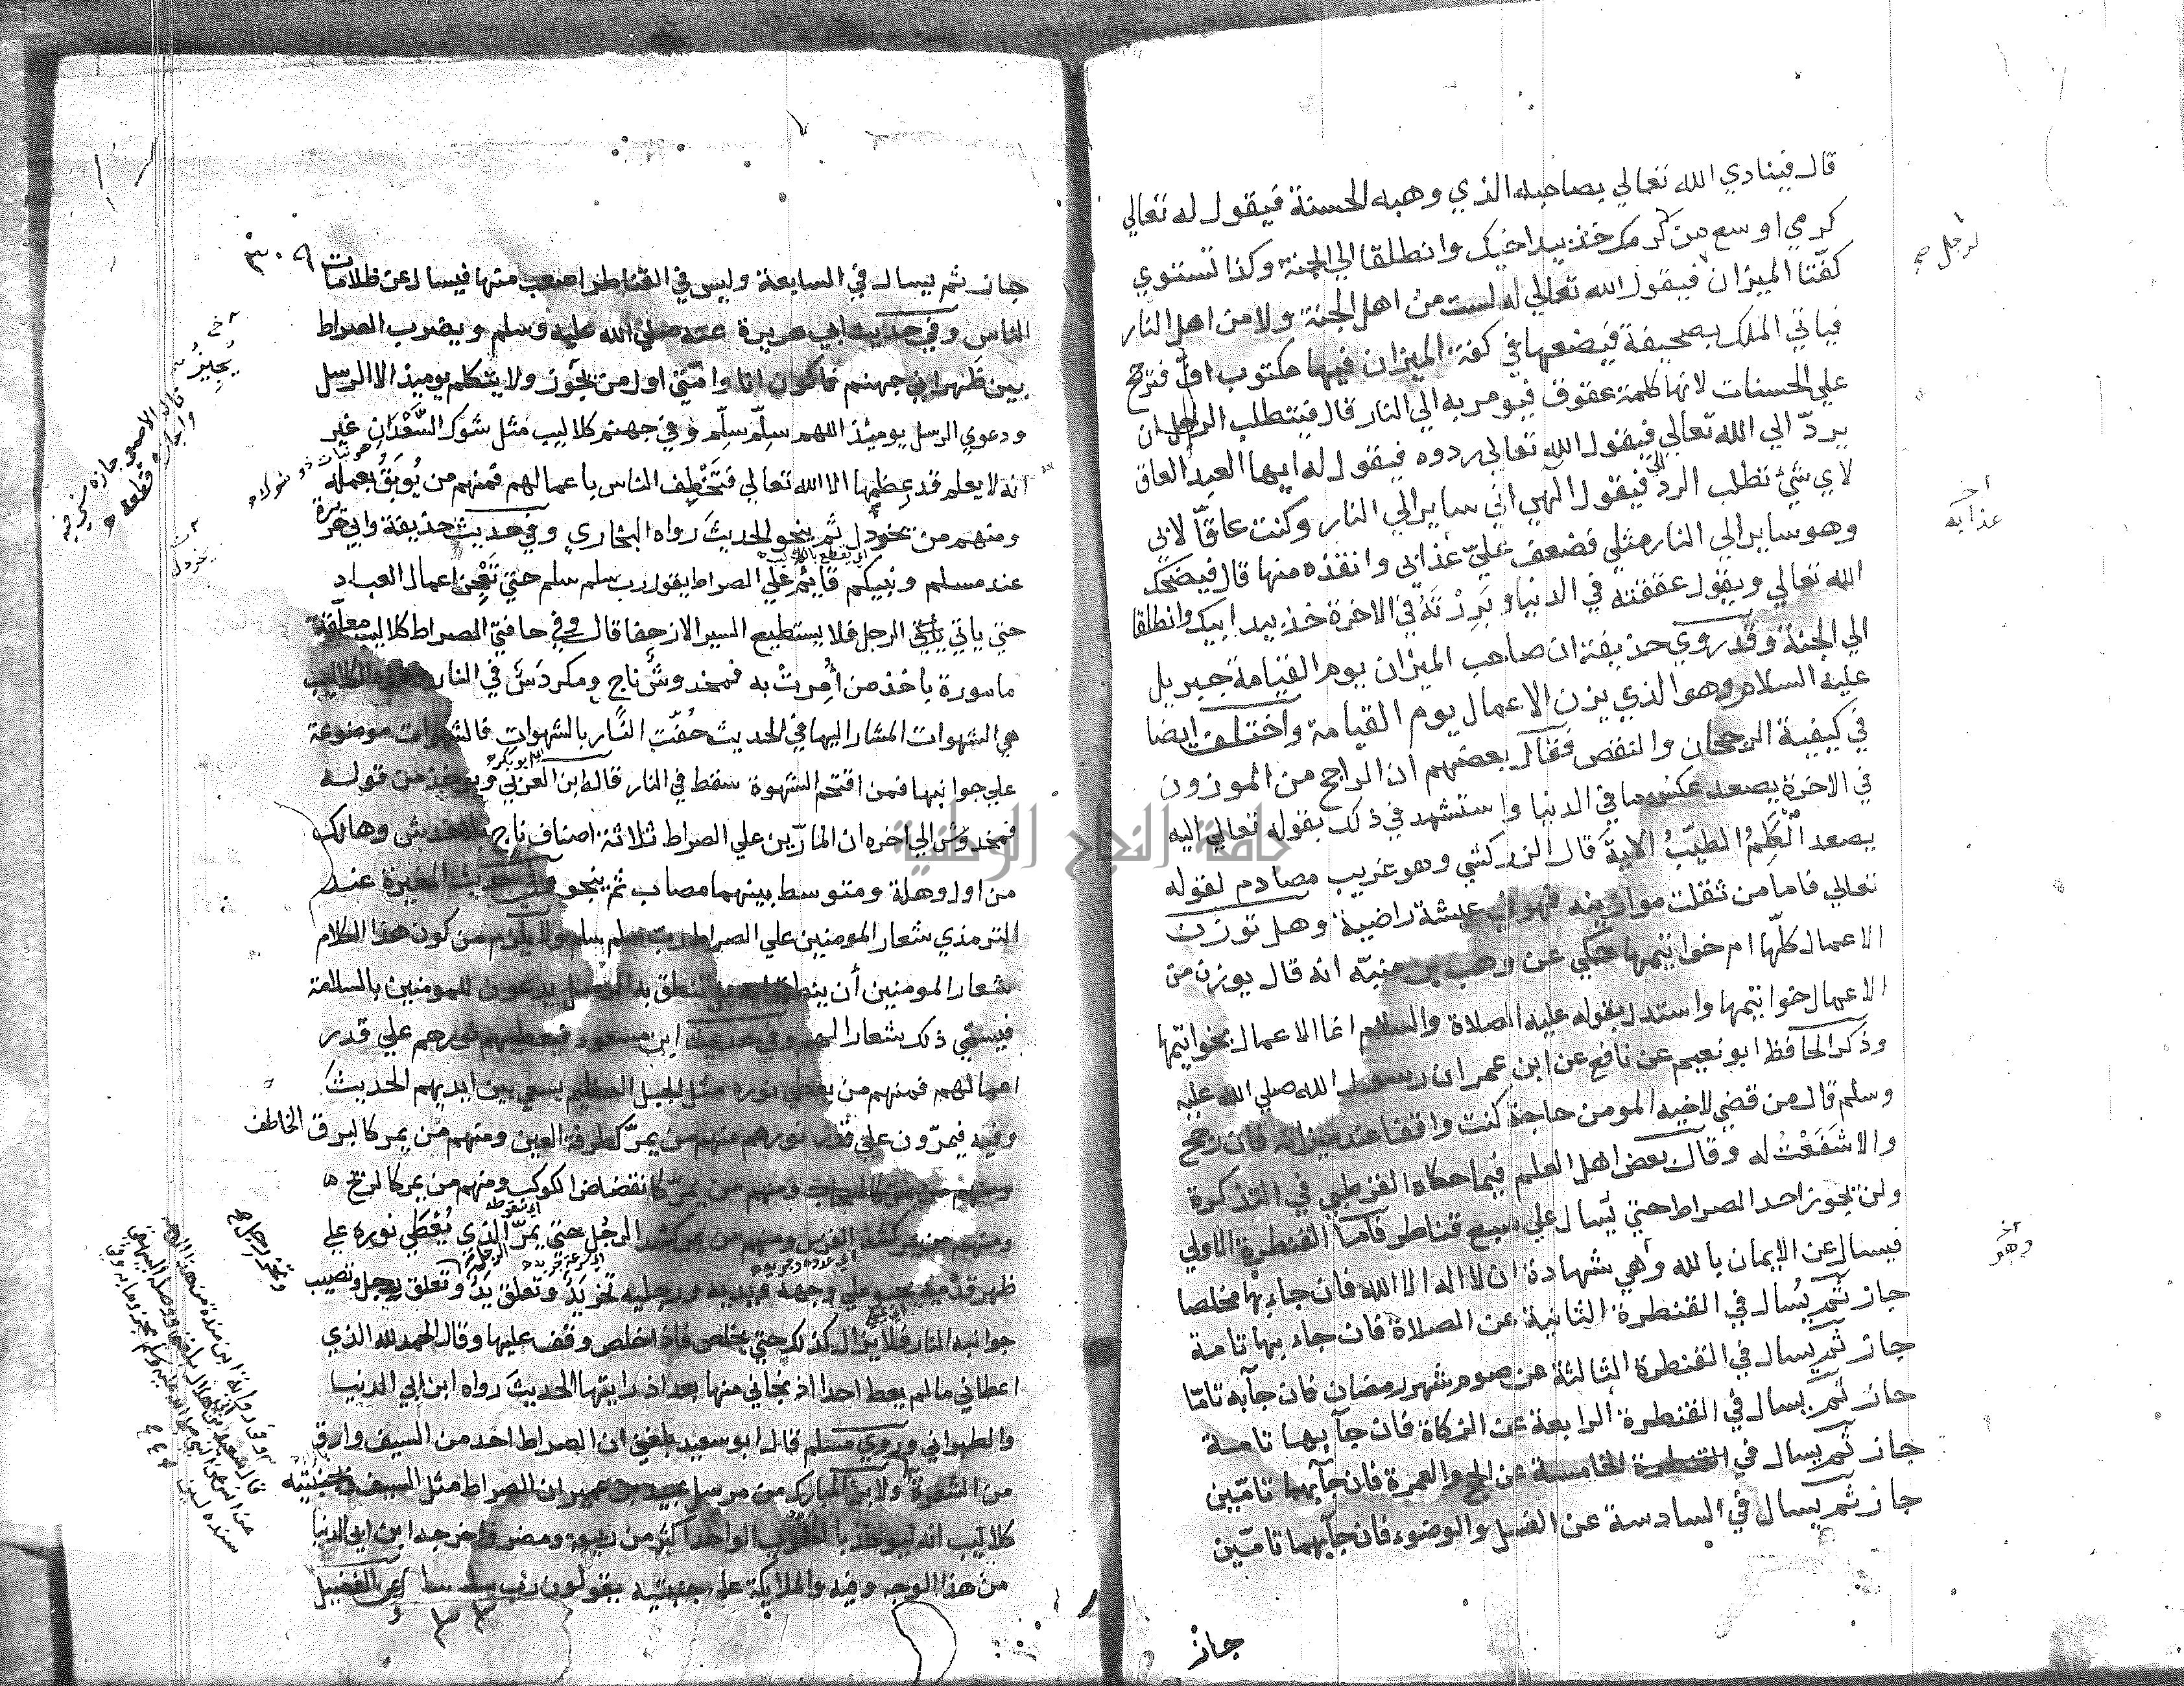 قال فينادي الله تعالي يصاحبه الذي وهبه الحسنة فيقول له تعالي
كرمي اوسع من كرمك خذ بيد اخيك وانطلقا الي الجنة وكذا تستوي
كفّتا الميزان فيقول الله تعالي له لست من اهل الجنة ولا من اهل النار
فياتي الملك بصحيفة فيضعها في كفة الميزان فيها مكتوب افّ فترجح
علي الحسنات لانها كلمة عقوق فيومر به الي النار قال فيتطلب الرجل ان
يردّ الي الله تعالي فيقول الله تعالي ردوه فيقول له ايها العبد العاق
لاي شئ تطلب الرد الي فيقول الهي اني ساير الي النار وكنت عاقّا لابي
وهو ساير الي النار مثلي فضعف عليّ عذابي وانقذه منها قال فيضحك
الله تعالي ويقول عققته في الدنيا وبَرِرْتَهُ في الاخرة خذ بيد ابيك وانطلقا
الي الجنة وقد روي حذيفة ان صاحب الميزان يوم القيامة جبريل
عليه السلام وهو الذي يزن الاعمال يوم القيامة واختلف ايضا
في كيفية الرجحان والنقص فقال بعضهم ان الراجح من الموزون
في الاخرة يصعد عكس ما في الدنيا واستشهد في ذلك بقوله تعالي اليه
يصعد الْكَلِمُ الطيّبُ الاية قال الزركشي وهو غريب مصادم لقوله
تعالي فاما من ثقلت موازينه فهو في عيشة راضية وهل توزن
الاعمال كلّها ام خواتيمها حكي عن وهب بن منبّه انه قال يوزن من
الاعمال خواتيمها واستدل بقوله عليه الصلاة والسلام انما الاعمال بخواتيمها
وذكر الحافظ ابو نعيم عن نافع عن ابن عمر ان رسول الله صلي الله عليه
وسلم قال من قضي لاخيه المومن حاجة كنت واقفا عند ميزانه فان رجح
والا شَفَعْتُ له وقال بعض اهل العلم فيما حكاه القرطبي في التذكرة
ولن يجوز احد الصراط حتي يُسال علي سبع قناطر فاما القنطرة الاولي
فيسال عن الايمان بالله وهي شهادة ان لا اله الا الله فان جاء بها مخلصا
جاز ثم يُسال في القنطرة الثانية عن الصلاة فان جاء بها تامة
جاز ثم يسال في القنطرة الثالثة عن صوم شهر رمضان فان جآ به تامّا
جاز ثم يسال في القنطرة الرابعة عن الزكاة فان جآ بها تامة
جاز ثم يسال في القنطرة الخامسة عن الحج والعمرة فان جآ بهما تامّين
جاز ثم يسال في السادسة عن الغسل والوضوء فان جآ بهما تامّين
جاز
الرجل صح
عذابه
وهو
٣٠٩
جاز ثم يسال في السابعة وليس في القناطر اصعب منها فيسال عن ظلامات
الناس وفي حديث ابي هريرة عنه صلي الله عليه وسلم ويضرب الصراط
بين ظهراني جهنم فاكون انا وامّتي اول من يجوز ولا يتكلم يوميذ الا الرسل
ودعوي الرسل يوميئذ اللهم سلّم سلّم وفي جهنم كلاليب مثل شوك السَّعْدَان غير
انه لا يعلم قدر عظمها الا الله تعالي فتَخْطِف الناس باعمالهم فمنهم من يُوبَقُ بعمله
ومنهم من يخردل ثم ينجو الحديث رواه البخاري وفي حديث حذيفة وابي هريرة
عند مسلم ونبيكم قايم علي الصراط يقول رب سلم سلم حتي تَعْجِزَ اعمال العباد
حتي ياتي الرجل فلا يستطيع السير الا زحفا قال وفي حافتي الصراط كلاليب معلّقة
مامورة ياخذ من أُمِرتْ به فمخدوش ناج ومكردَسٌ في النار وهذه الكلاليب
هي الشهوات المشار اليها في الحديث حُفّتِ النار بالشهوات فالشهوات موضوعة
علي جوانبها فمن اقتحم الشهوة سقط في النار قاله ابن العربي ويوخذ من قوله
فمخدوش الي اخره ان المارّين علي الصراط ثلاثة اصناف ناج بلا خدش وهالك
من اول وهلة ومتوسط بينهما مصاب ثم ينجو وفي حديث المغيرة عند
الترمذي شعار المومنين علي الصراط رب سلم سلم ولا يلزم من كون هذا الكلام
شعار المومنين أن ينطقوا به بل تنطق به الرسل يدعون للمومنين بالسلامة
فيسمّي ذلك شعارا لهم وفي حديث ابن مسعود فيعطيهم نورهم علي قدر
اعمالهم فمنهم من يعطي نوره مثل الجبل العظيم يسعي بين ايديهم الحديث
وفيه فيمرّون علي قدر نورهم منهم من يمرّ كطرفة العين ومنهم من يمر كالبرق الخاطف
ومنهم من يمر كالسحاب ومنهم من يمرّ كانقضاض الكوكب ومنهم من يمر كالريح
ومنهم من يمر كشد الفرس ومنهم من يمر كشد الرجُل حتي يمرّ الذي يُعْطَي نوره علي
ظهر قدميه يحبو علي وجهه ويديه ورجليه تخر يَدٌ وتعلق يَدٌ وتعلق رجل وتصيب
جوانبه النار فلا يزال كذلك حتي يخلص فاذا خلص وقف عليها وقال الحمد لله الذي
اعطاني ما لم يعط احدا اذ نجاني منها بعد اذ رايتها الحديث رواه ابن ابي الدنيا
والطبراني وروي مسلم قال ابو سعيد بلغني ان الصراط احد من السيف وارق
من الشعرة ولابن المبارك من مرسل عبيد بن عمير ان الصراط مثل السيف وبجنبتيه
كلاليب انه ليوخذ بالكلّوب الواحد اكثر من ربيعة ومضر واخرجه ابن ابي الدنيا
من هذا الوجه وفيه والملايكة علي جنبتيه يقولون رب سلم سلم وعن الفضيل
يجيز
قال الاصمعي جازه مشي فيه
واجازه قطعه
هو نبات ذو شوك
يخردل
اي ابو بكر
وتخر رجل صح
جامعة النجاح الوطنية